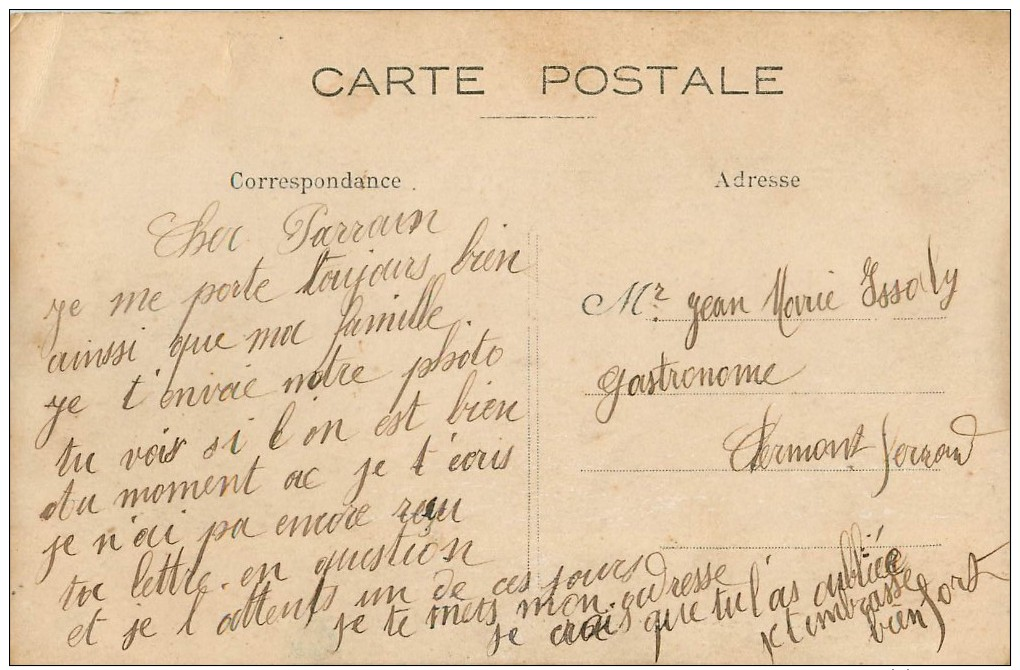 CARTE POSTALE
Correspondance
Cher Parrain
je me porte toujours bien
ainssi que ma famille
je t'envoie notre photo
tu vois si l'on est bien
du moment ac je t'écris
je n'ai pa encore reçu
ta lettre en question
et je l'attents un de ces jours
je te mets mon adresse
je crois que tu l'as oubliée
je t'embrasse
bien fort
Adresse
Mr Jean Marie Issaly
gastronome
Clermont ferrand